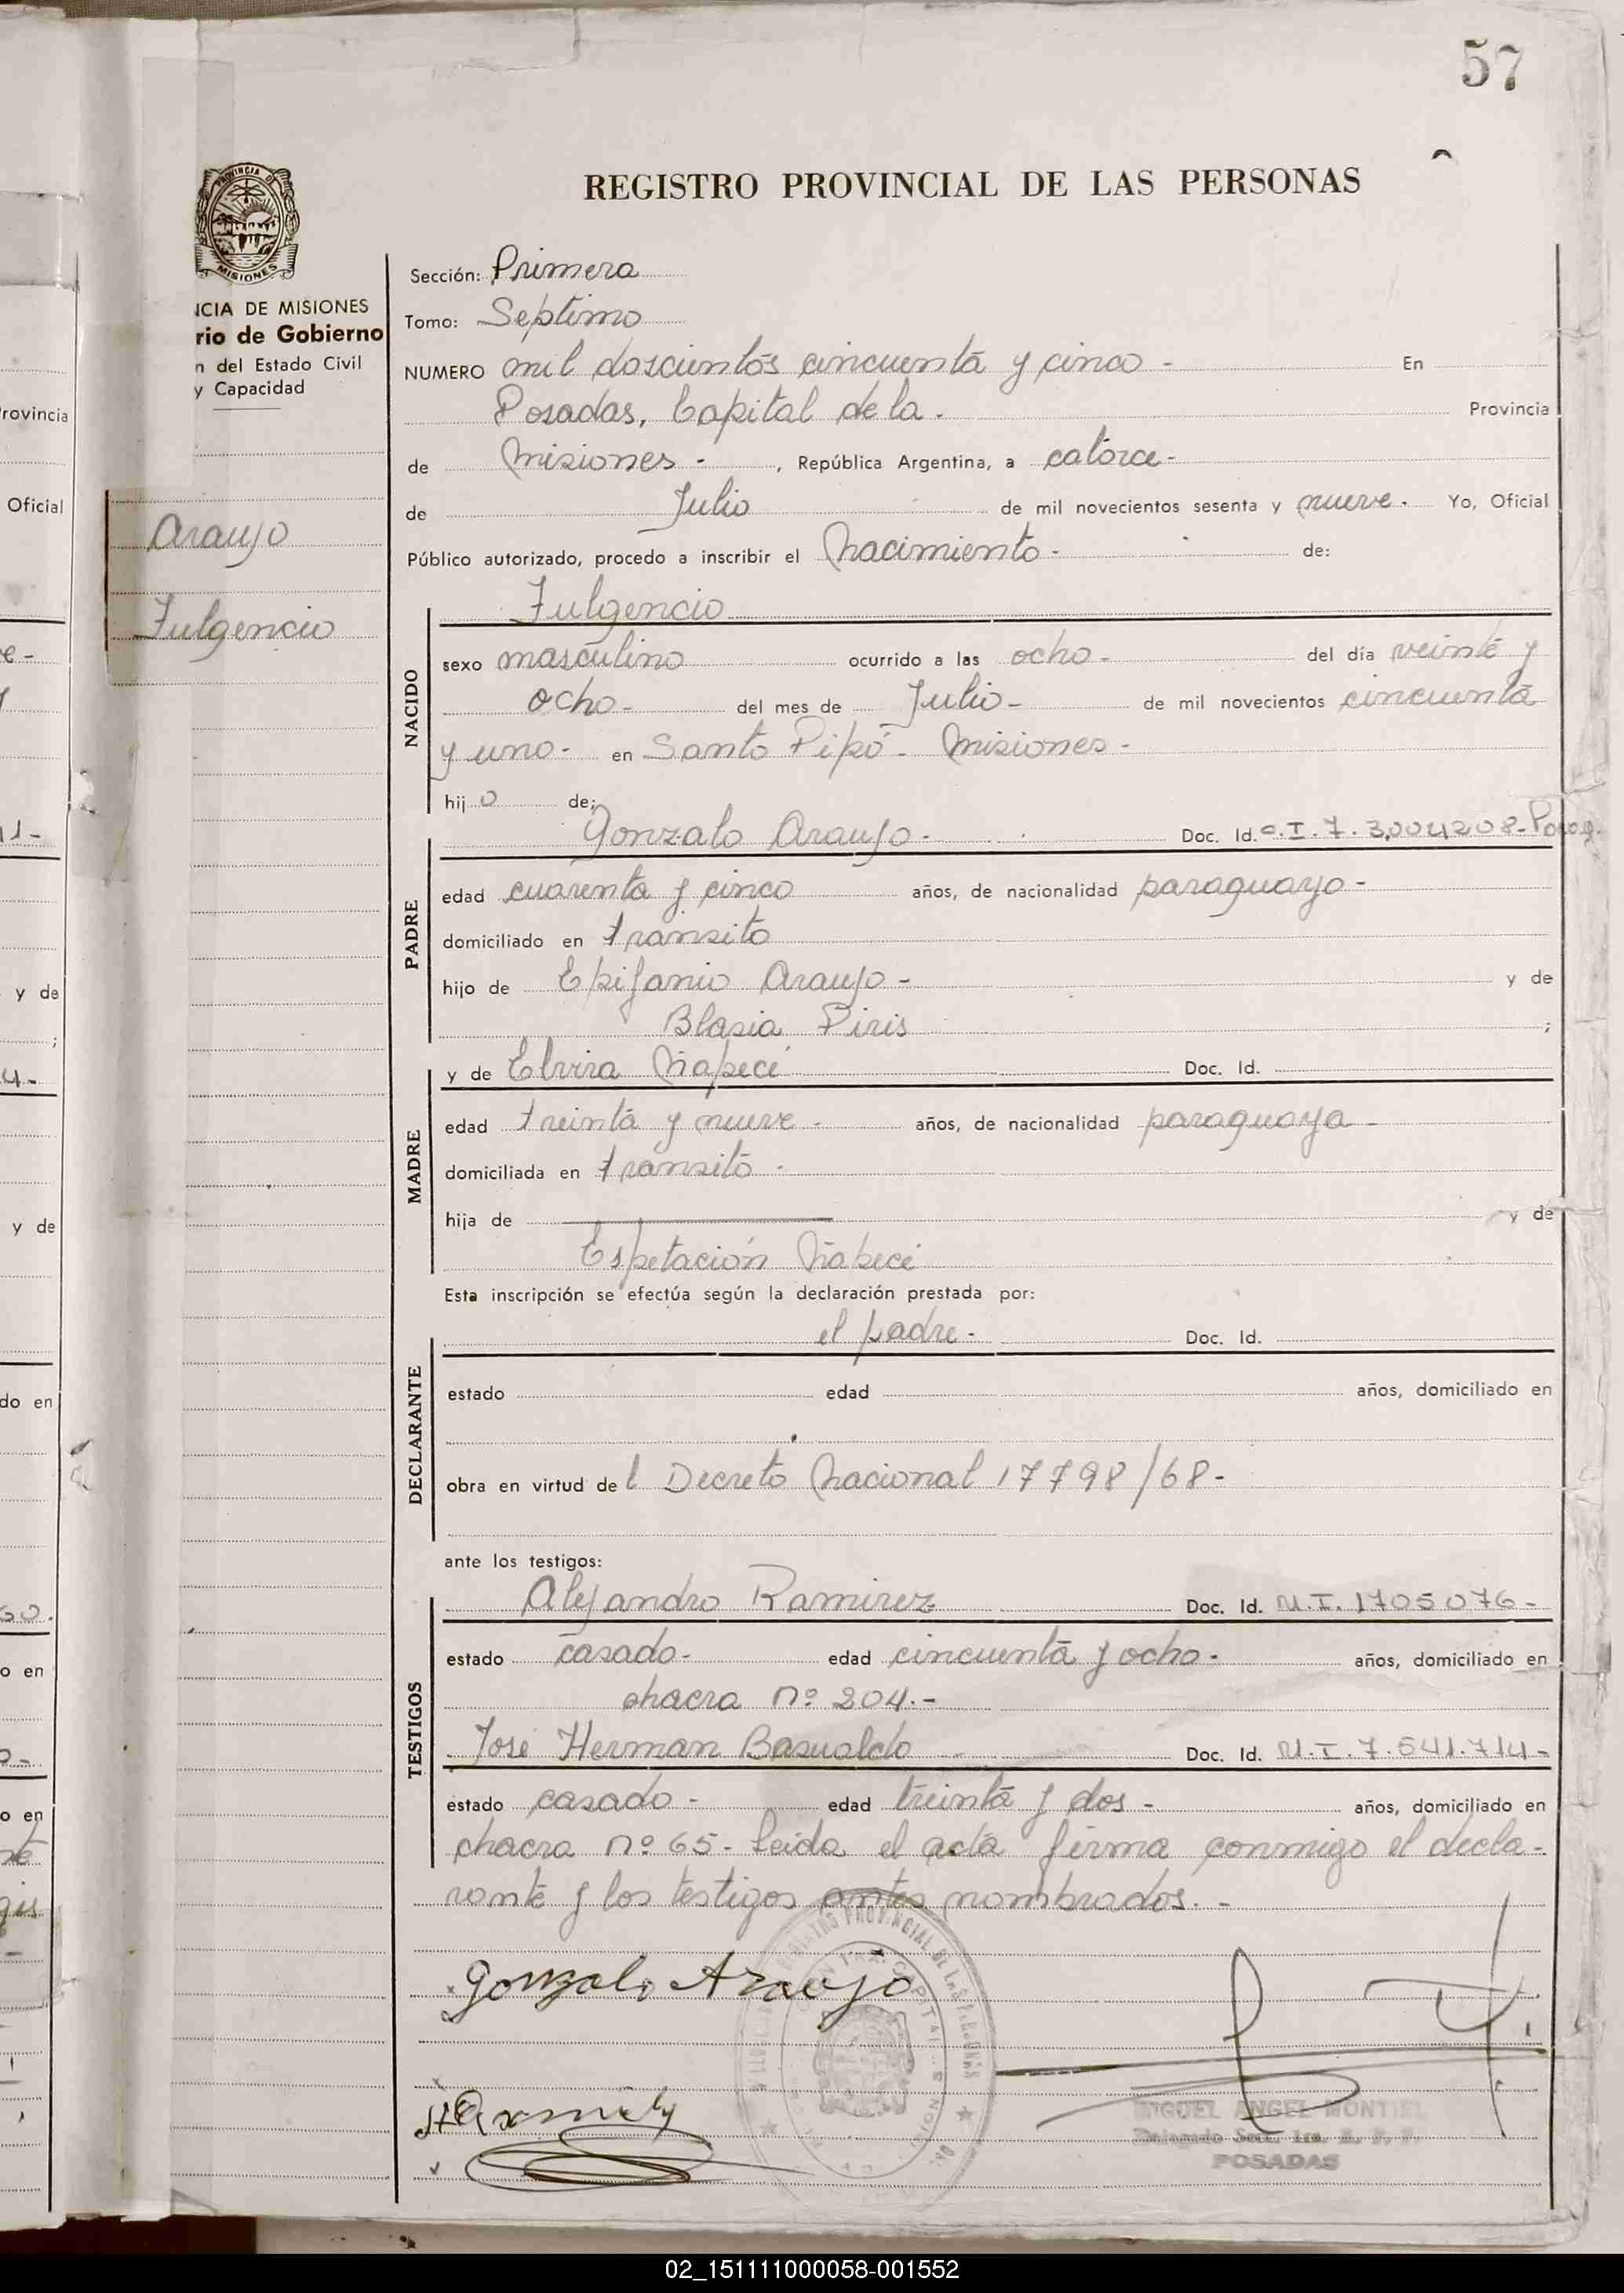 57
REGISTRO PROVINCIAL DE LAS PERSONAS
PROVINCIA DE
MISIONES
NCIA DE MISIONES
rio de Gobierno
n del Estado Civil
y Capacidad
Araujo
Fulgencio
Sección: Primera
Tomo: Septimo
NUMERO mil doscientos cincuenta y cinco - En
Posadas, Capital de la. Provincia
de Misiones - , República Argentina, a catorce -
de Julio de mil novecientos sesenta y nueve. Yo, Oficial
Público autorizado, procedo a inscribir el Nacimiento - de:
Fulgencio
NACIDO
sexo masculino ocurrido a las ocho - del día veinte y
ocho - del mes de Julio - de mil novecientos cincuenta
y uno - en Santo Pipó - Misiones -
hijo de;
Gonzalo Araujo - Doc. Id. C.I.7.3004208-
PADRE
edad cuarenta y cinco años, de nacionalidad paraguayo -
domiciliado en transito
hijo de Epifanio Araujo - y de
Blasia Piris ;
y de Elvira Ñapeci Doc. Id.
MADRE
edad treinta y nueve - años, de nacionalidad paraguaya -
domiciliada en transito -
hija de y de
Espetación Ñapeci
Esta inscripción se efectúa según la declaración prestada por:
el padre - Doc. Id.
DECLARANTE
estado edad años, domiciliado en
obra en virtud del Decreto Nacional 17798/68 -
ante los testigos:
Alejandro Ramirez Doc. Id. M.I. 1705076 -
TESTIGOS
estado casado - edad cincuenta y ocho - años, domiciliado en
chacra nº 204.-
José Herman Basualdo Doc. Id. M.I. 7.541.714 -
estado casado - edad treinta y dos - años, domiciliado en
chacra nº 65 - Leida el acta firma conmigo el decla-
rante y los testigos antes nombrados. -
Gonzalo Araujo
MIGUEL ANGEL MONTIEL
Delegado Secc. 1ra. R. P. P.
POSADAS
Provincia
Oficial
y de
y de
do en
o en
o en
02_151111000058-001552